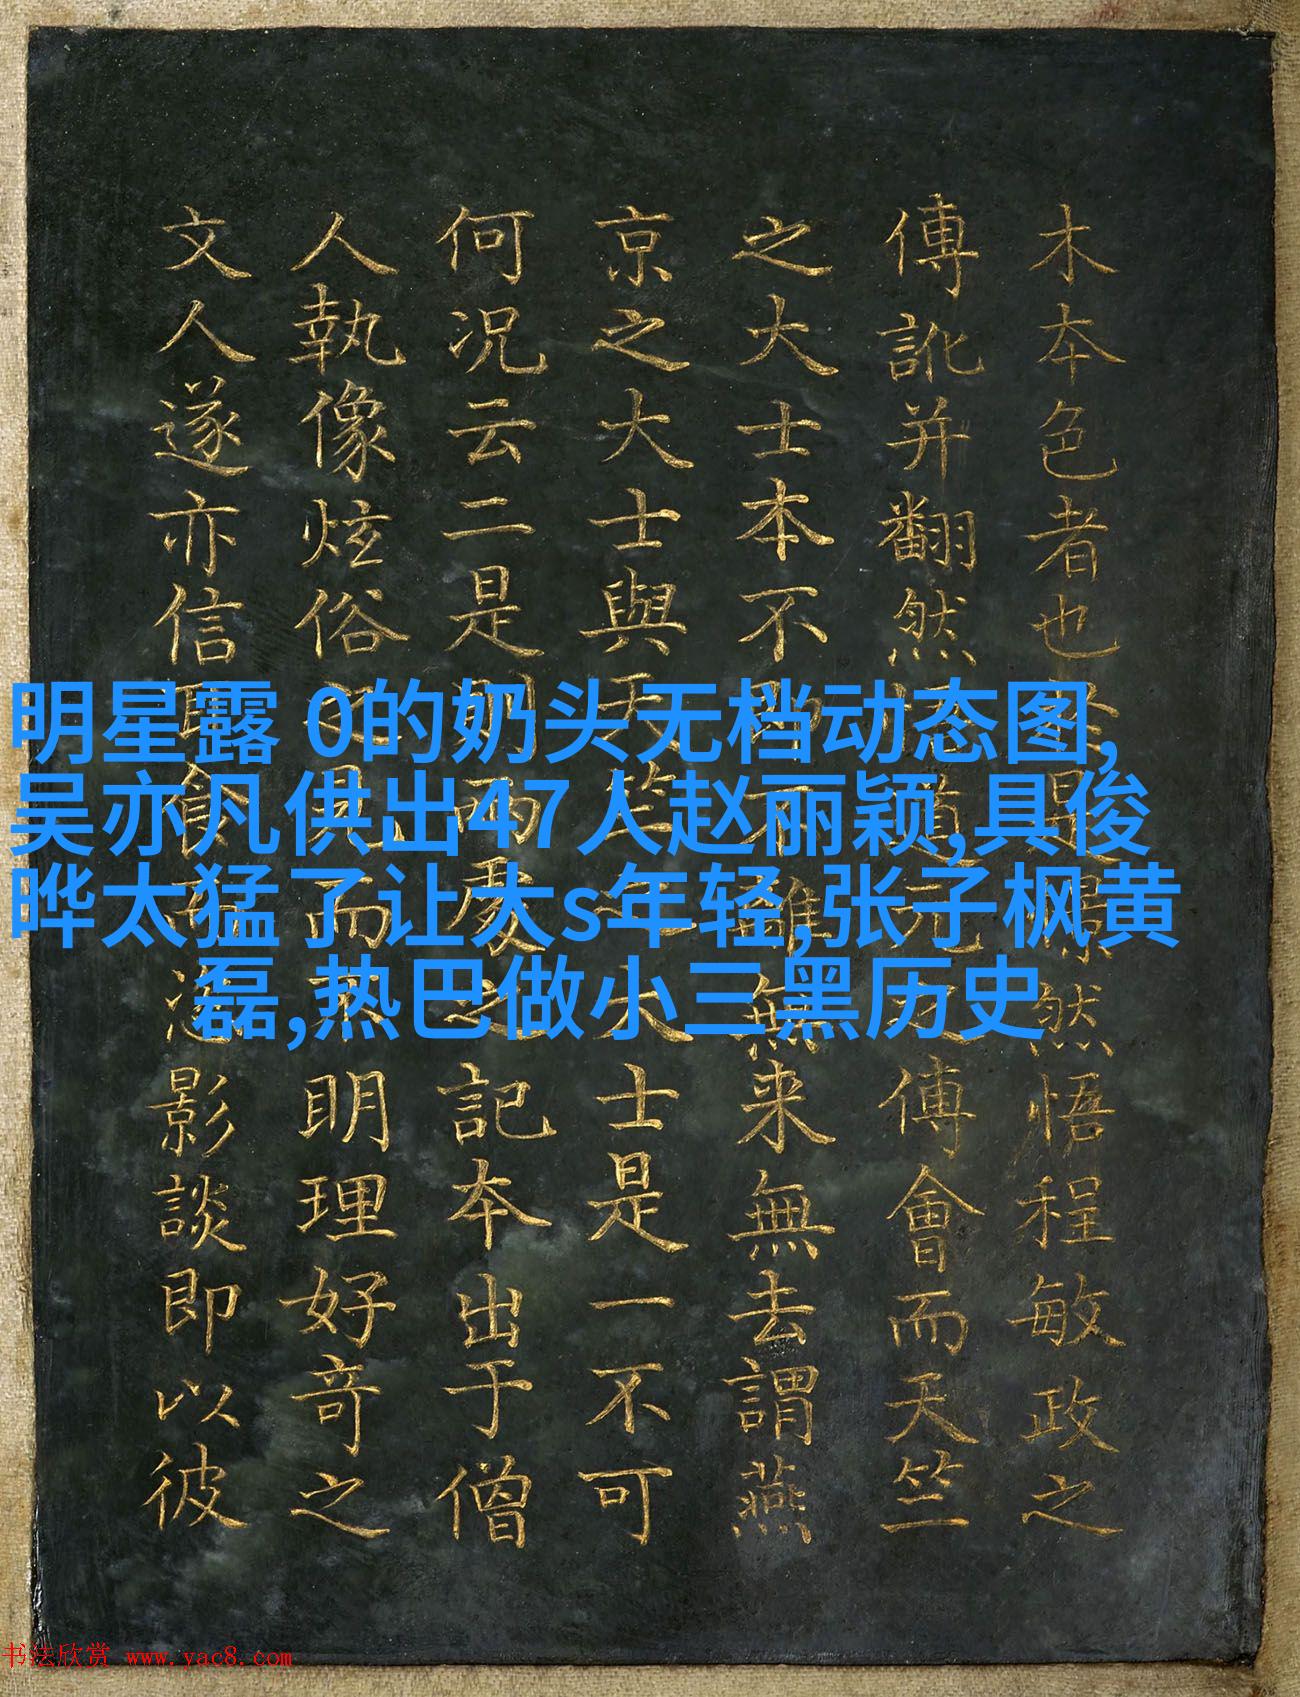 木本色者也是憬然悟程敏政之
傳訛并翻然道元之傅會而天竺
之大士本不即不離無来無去謂燕
京之大士與天竺之大士是一不可
何况云二是則兩處之記本出于僧
人執像炫俗之見而不明理好奇之
文人遂亦信耳食而影談即以彼
明星露 0的奶头无档动态图,
吴亦凡供出47人赵丽颖,具俊
晔太猛了让大s年轻,张子枫黄
磊,热巴做小三黑历史
书法欣赏 www.yac8.com